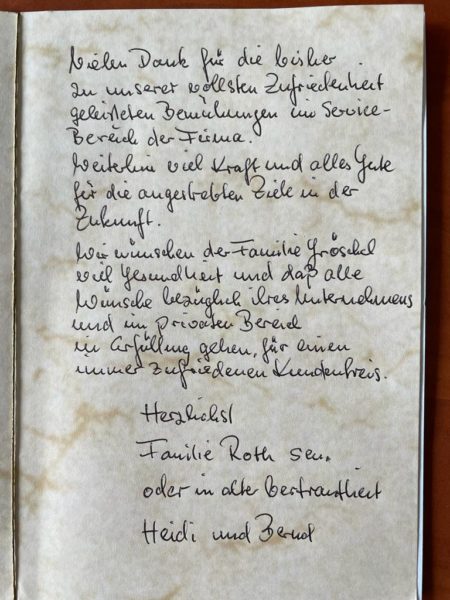 Vielen Dank für die bisher
zu unserer vollsten Zufriedenheit
geleisteten Bemühungen im Service-
Bereich der Firma.
Weiterhin viel Kraft und alles Gute
für die angestrebten Ziele in der
Zukunft.
Wir wünschen der Familie Gröschel
viel Gesundheit und daß alle
Wünsche bezüglich ihres Unternehmens
und im privaten Bereich
in Erfüllung gehen, für einen
immer zufriedenen Kundenkreis.
Herzlichst
Familie Roth sen.
oder in alter Vertrautheit
Heidi und Bernd